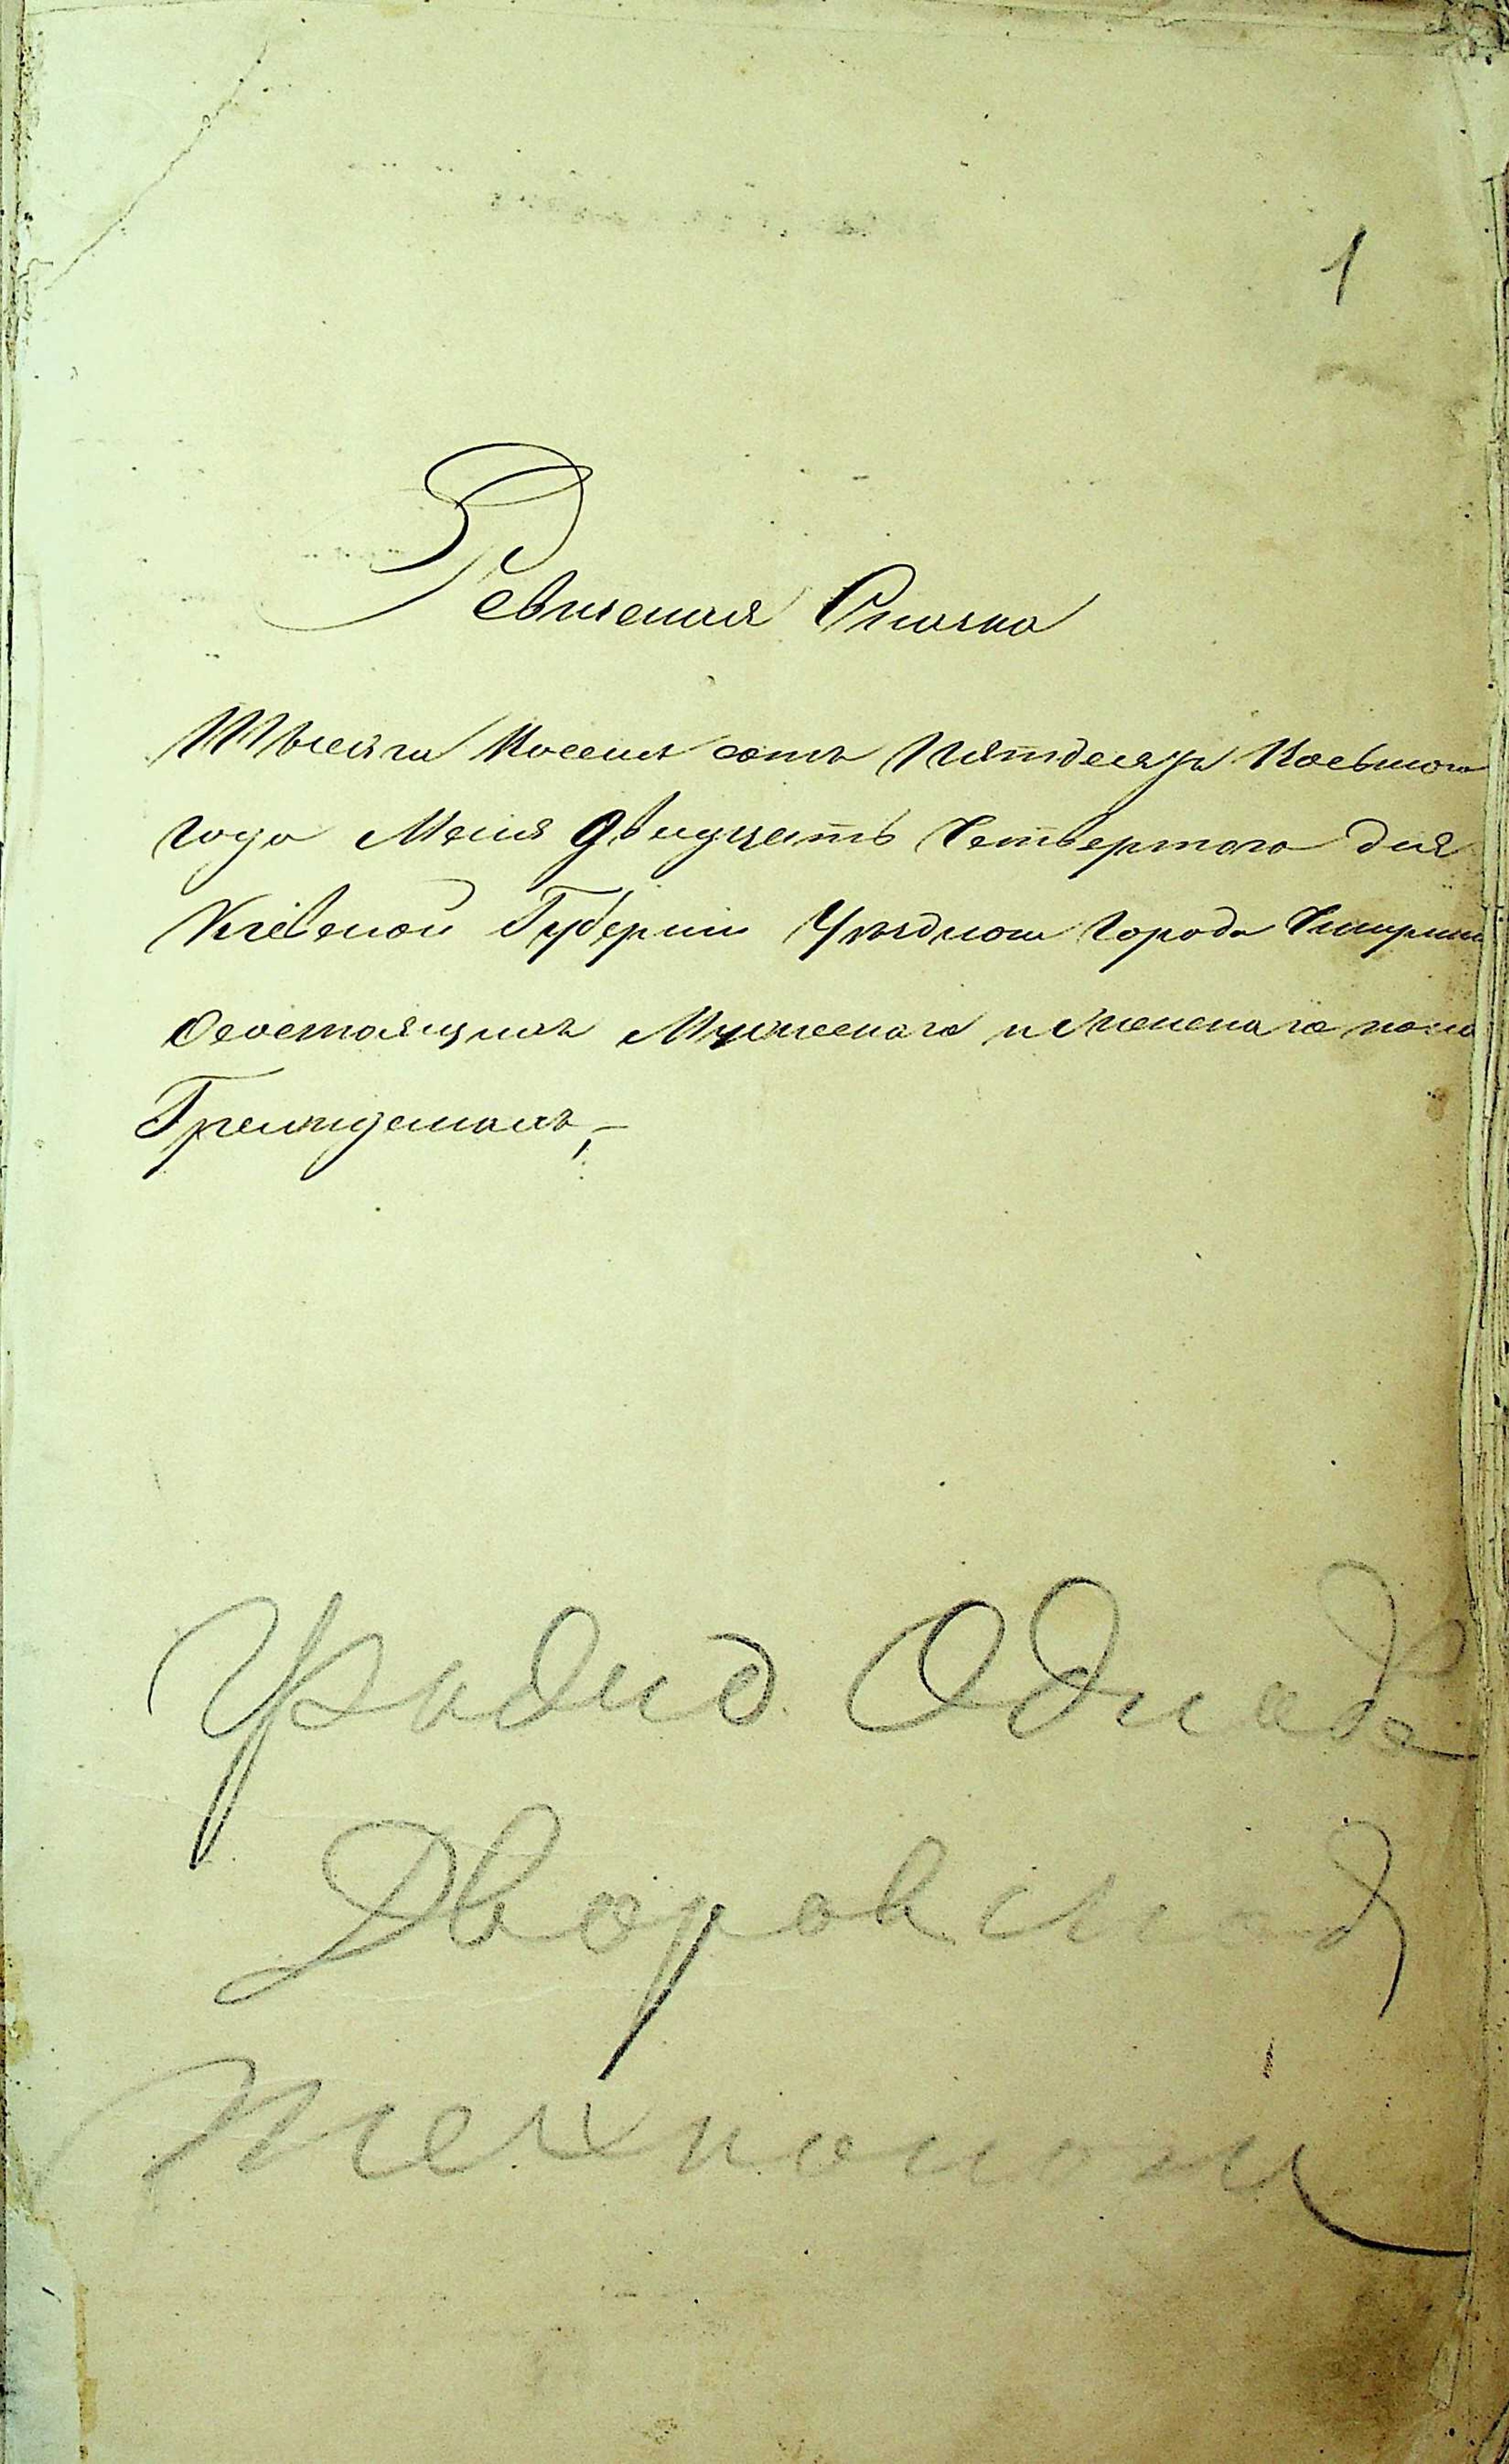 1
Ревизская Сказка
Тысяча Восемь сотъ Пятьдесятъ Восьмого
года Мая Двадцать Четвертого дня
Кіевской Губерніи Уѣзднаго города Чигирина
о состоящихъ Мужескаго и Женскаго пола
Гражданахъ,-
Одно
Дворовъ